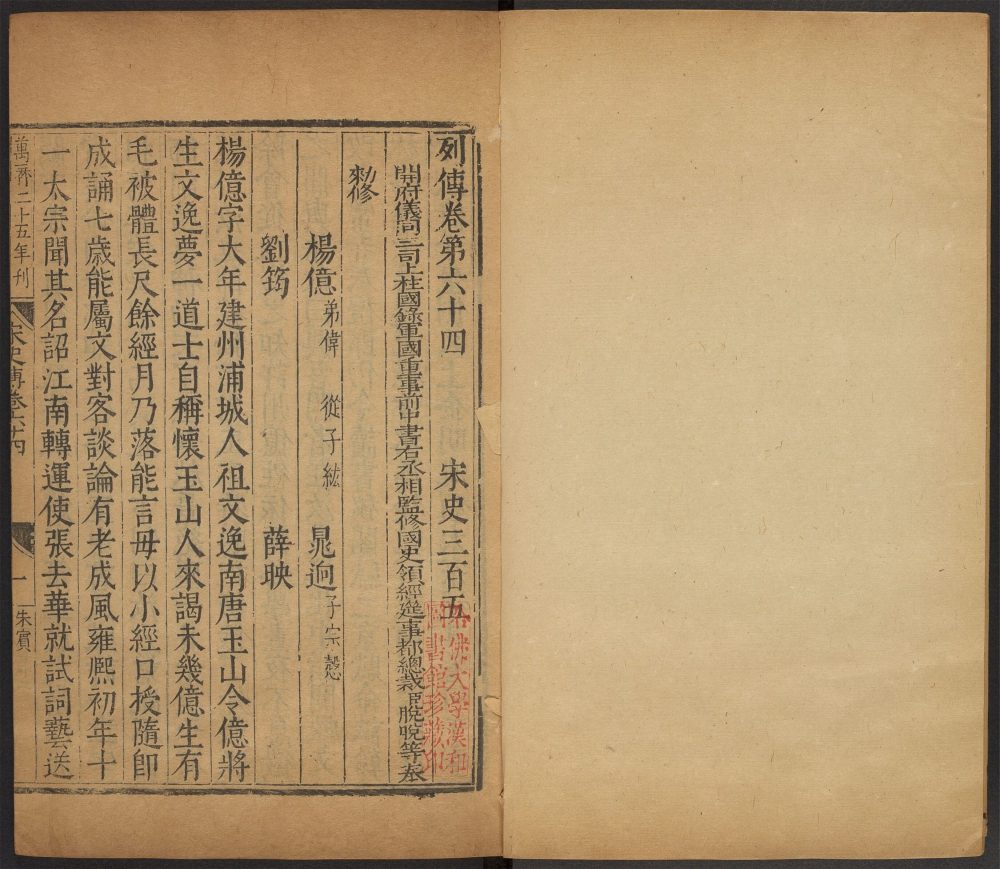 列傳卷第六十四 宋史三百五
開府儀同三司上柱國錄軍國重事前中書右丞相監修國史領經筵事都總裁臣脫脫等奉
勑修
楊億 弟偉 從子紘 晁迥 子宗愨
劉筠 薛映
楊億字大年建州浦城人祖文逸南唐玉山令億將
生文逸夢一道士自稱懷玉山人來謁未幾億生有
毛被體長尺餘經月乃落能言母以小經口授隨即
成誦七歲能屬文對客談論有老成風雍熙初年十
一太宗聞其名詔江南轉運使張去華就試詞藝送
萬曆二十五年刊 宋史傳卷六十四 一 朱賓
哈佛大學漢和
圖書館珍藏印